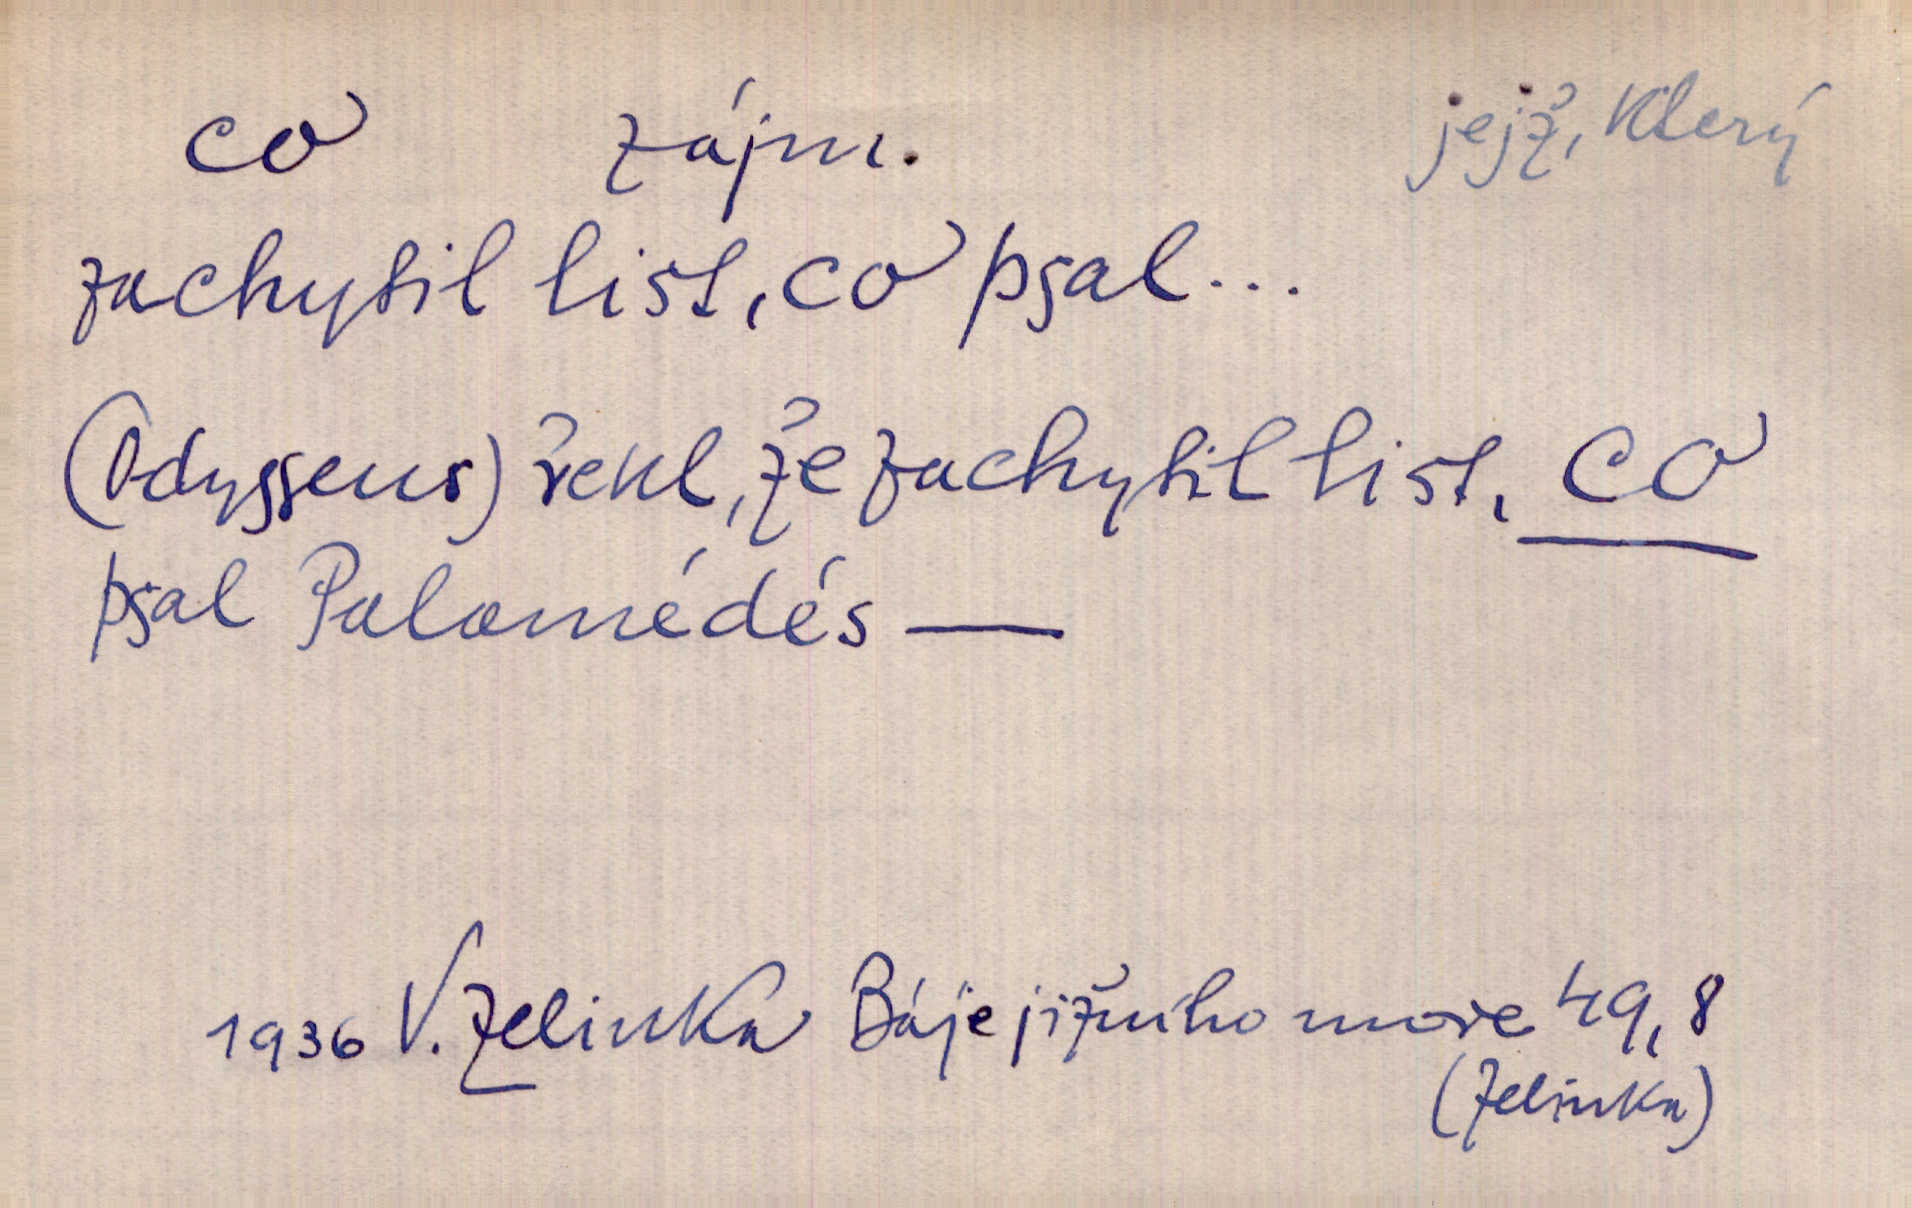 co zájm. jejž, který
zachytil list, co psal...
(Odysseus) řekl, že zachytil list, co
psal Palamédés —
1936 V. Zelinka Báje jižního moře 49, 8
(Zelinka)